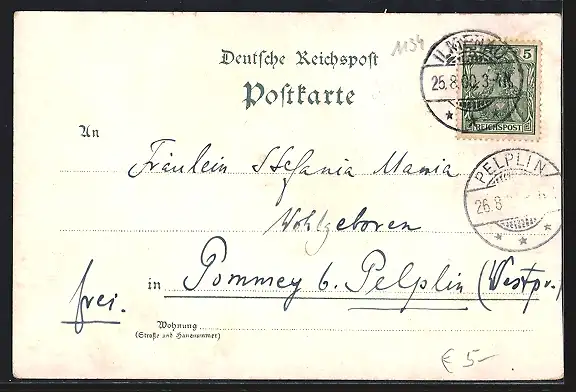 1134
Deutsche Reichspost
Postkarte
ILMENAU
25.8.00. 3-4 N.
5
REICHSPOST
An
Fräulein Stefania Mania
Wohlgeboren
PELPLIN
26.8
in Pommey b. Pelplin (Westpr.)
frei.
Wohnung
(Straße und Hausnummer)
€ 5-